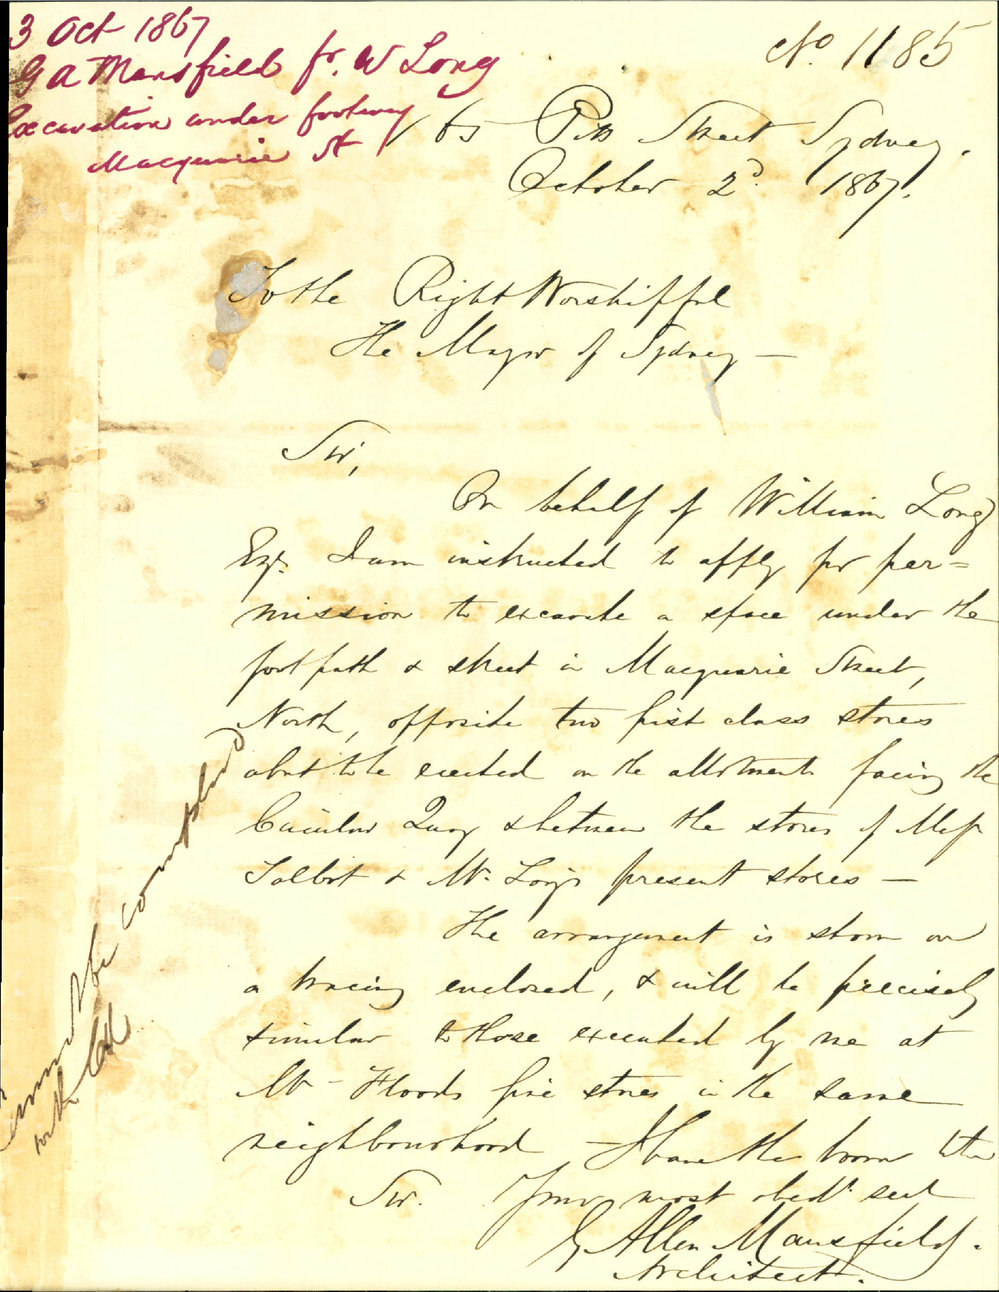 3 Oct 1867
G A Mansfield fr. W Long
Excavation under footway
Macquarie St
No 1185
Pitt Street Sydney.
October 2d. 1867.
To the Right Worshipful
The Mayor of Sydney —
Sir,
On behalf of William Long
Esqr. I am instructed to apply for per=
mission to excavate a space under the
footpath & street in Macquarie Street,
North, opposite two first class stores
about to be erected on the allotment facing the
Circular Quay & between the stores of Messrs
Talbot & Mr. Long's present stores —
The arrangement is shown on
a tracing enclosed, & will be precisely
similar to those executed by me at
Mr Floods five stores in the same
neighbourhood — I have the honor to be
Sir. Your most obedt. servt
G Allen Mansfield.
Architect.
cannot be complied
with